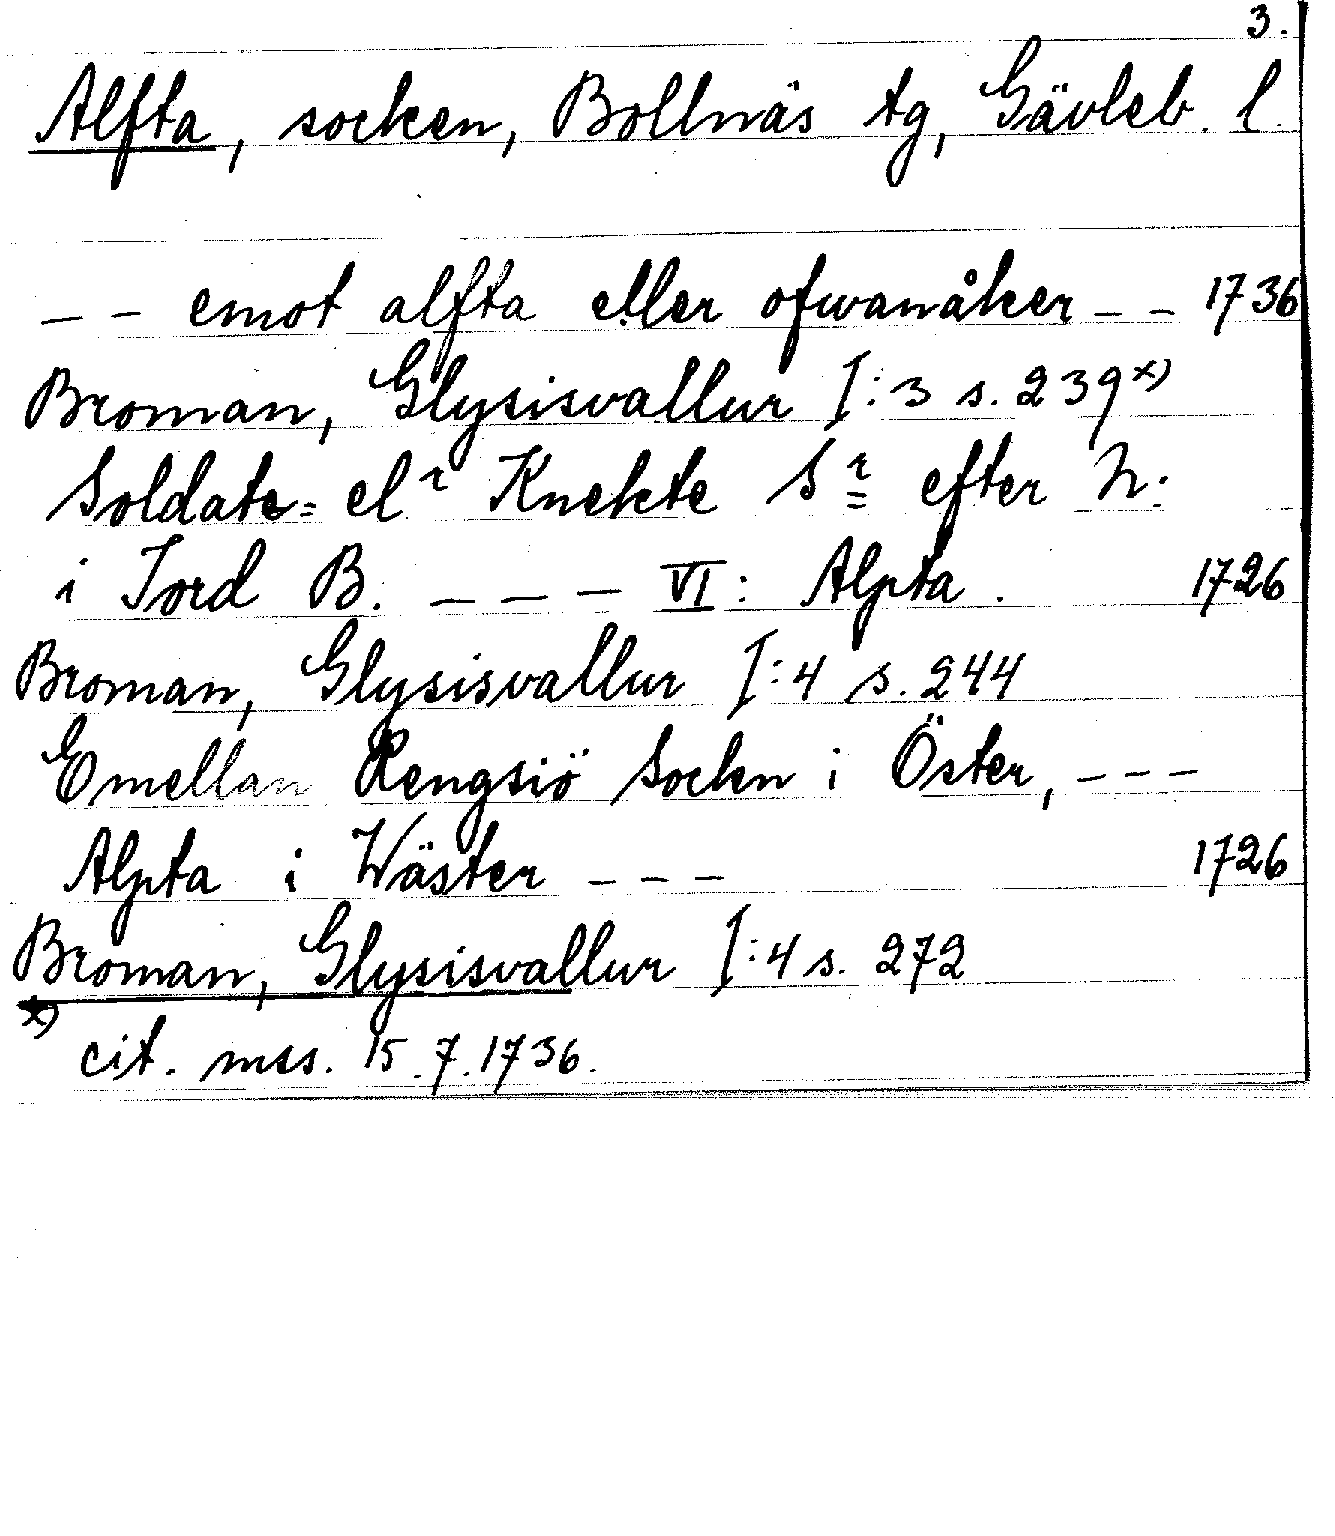 3.
Alfta, socken, Bollnäs tg, Gävleb. l.
– – emot alfta eller ofwanåker – – 1736
Broman, Glysisvallur I:3 s. 239 x)
Soldate= elr Knekte Sr efter N:
i Jord B. – – – VI: Alpta. 1726
Broman, Glysisvallur I:4 s. 244
Emellan Rengsiö Sockn i Öster, – – –
Alpta i Wäster – – – 1726
Broman, Glysisvallur I:4 s. 272
x) cit. mss. 15.7.1736.